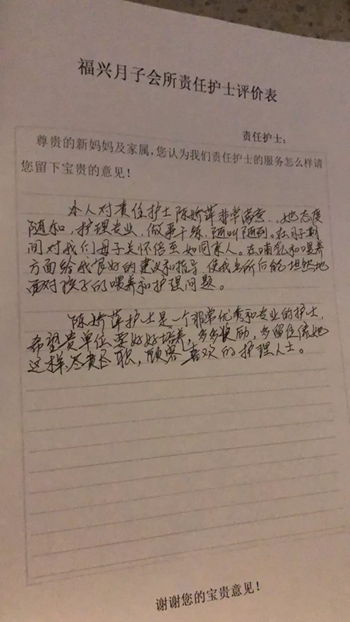 福兴月子会所责任护士评价表
责任护士：
尊贵的新妈妈及家属，您认为我们责任护士的服务怎么样请
您留下宝贵的意见！
本人对责任护士陈娇萍非常满意，她态度
随和，护理专业，做事干练，随叫随到。在月子期
间对我们母子关怀倍至如同家人。在哺乳和喂养
方面给我很好的建议和指导，使我出所后能坦然地
面对孩子的喂养和护理问题。
陈娇萍护士是一个非常优秀和专业的护士，
希望贵单位要好好培养，多多奖励，多留住像她
这样尽责尽职，顾客喜欢的护理人士。
谢谢您的宝贵意见！